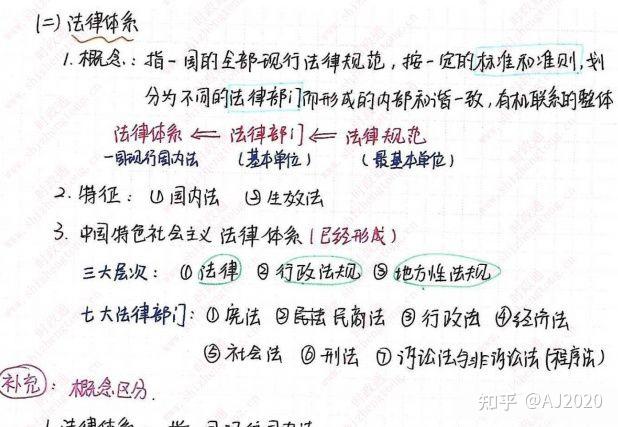 (二) 法律体系
1. 概念：指一国的全部现行法律规范，按一定的标准和准则，划
分为不同的法律部门而形成的内部和谐一致，有机联系的整体
法律体系 ⇐ 法律部门 ⇐ 法律规范
一国现行国内法 (基本单位) (最基本单位)
2. 特征：① 国内法 ② 生效法
3. 中国特色社会主义法律体系 (已经形成)
三大层次：① 法律 ② 行政法规 ③ 地方性法规
七大法律部门：① 宪法 ② 民法民商法 ③ 行政法 ④ 经济法
⑤ 社会法 ⑥ 刑法 ⑦ 诉讼法与非诉讼法 (程序法)
补充：概念区分.
知乎 @AJ2020